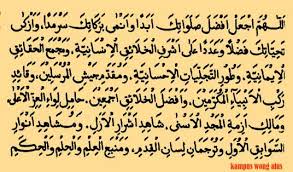 اَللّٰهُمَّ اجْعَلْ اَفْضَلَ صَلَوَاتِكَ اَبَدًا وَاَنْمَى بَرَكَاتِكَ سَرْمَدًا، وَاَزْكَى
تَحِيَّاتِكَ فَضْلًا وَعَدَدًا عَلَى اَشْرَفِ الْخَلَائِقِ الْاِنْسَانِيَّةِ، وَمَجْمَعِ الْحَقَائِقِ
الْاِيْمَانِيَّةِ، وَطُوْرِ التَّجَلِّيَاتِ الْاِحْسَانِيَّةِ، وَمُقَدَّمِ جَيْشِ الْمُرْسَلِيْنَ، وَقَائِدِ
رَكْبِ الْاَنْبِيَاءِ الْمُكَرَّمِيْنَ، وَاَفْضَلِ الْخَلَائِقِ اَجْمَعِيْنَ، حَامِلِ لِوَاءِ الْعِزِّ الْاَعْلٰى
وَمَالِكِ اَزِمَّةِ الْمَجْدِ الْاَسْنٰى، شَاهِدِ اَسْرَارِ الْاَزَلِ، وَمُشَاهِدِ اَنْوَارِ
السَّوَابِقِ الْاُوَلِ، وَتَرْجُمَانِ لِسَانِ الْقِدَمِ، وَمَنْبَعِ الْعِلْمِ وَالْحِلْمِ وَالْحِكَمِ
kampus wong alus